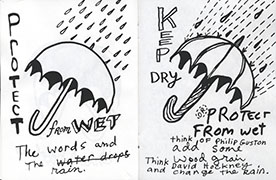 PROTECT
from WET
The words and
The water drops
rain.
KEEP
DRY
OR PROTECT
FROM WET
think OF Philip Guston
add some
Think Wood grain
David Hockney
and change the rain.